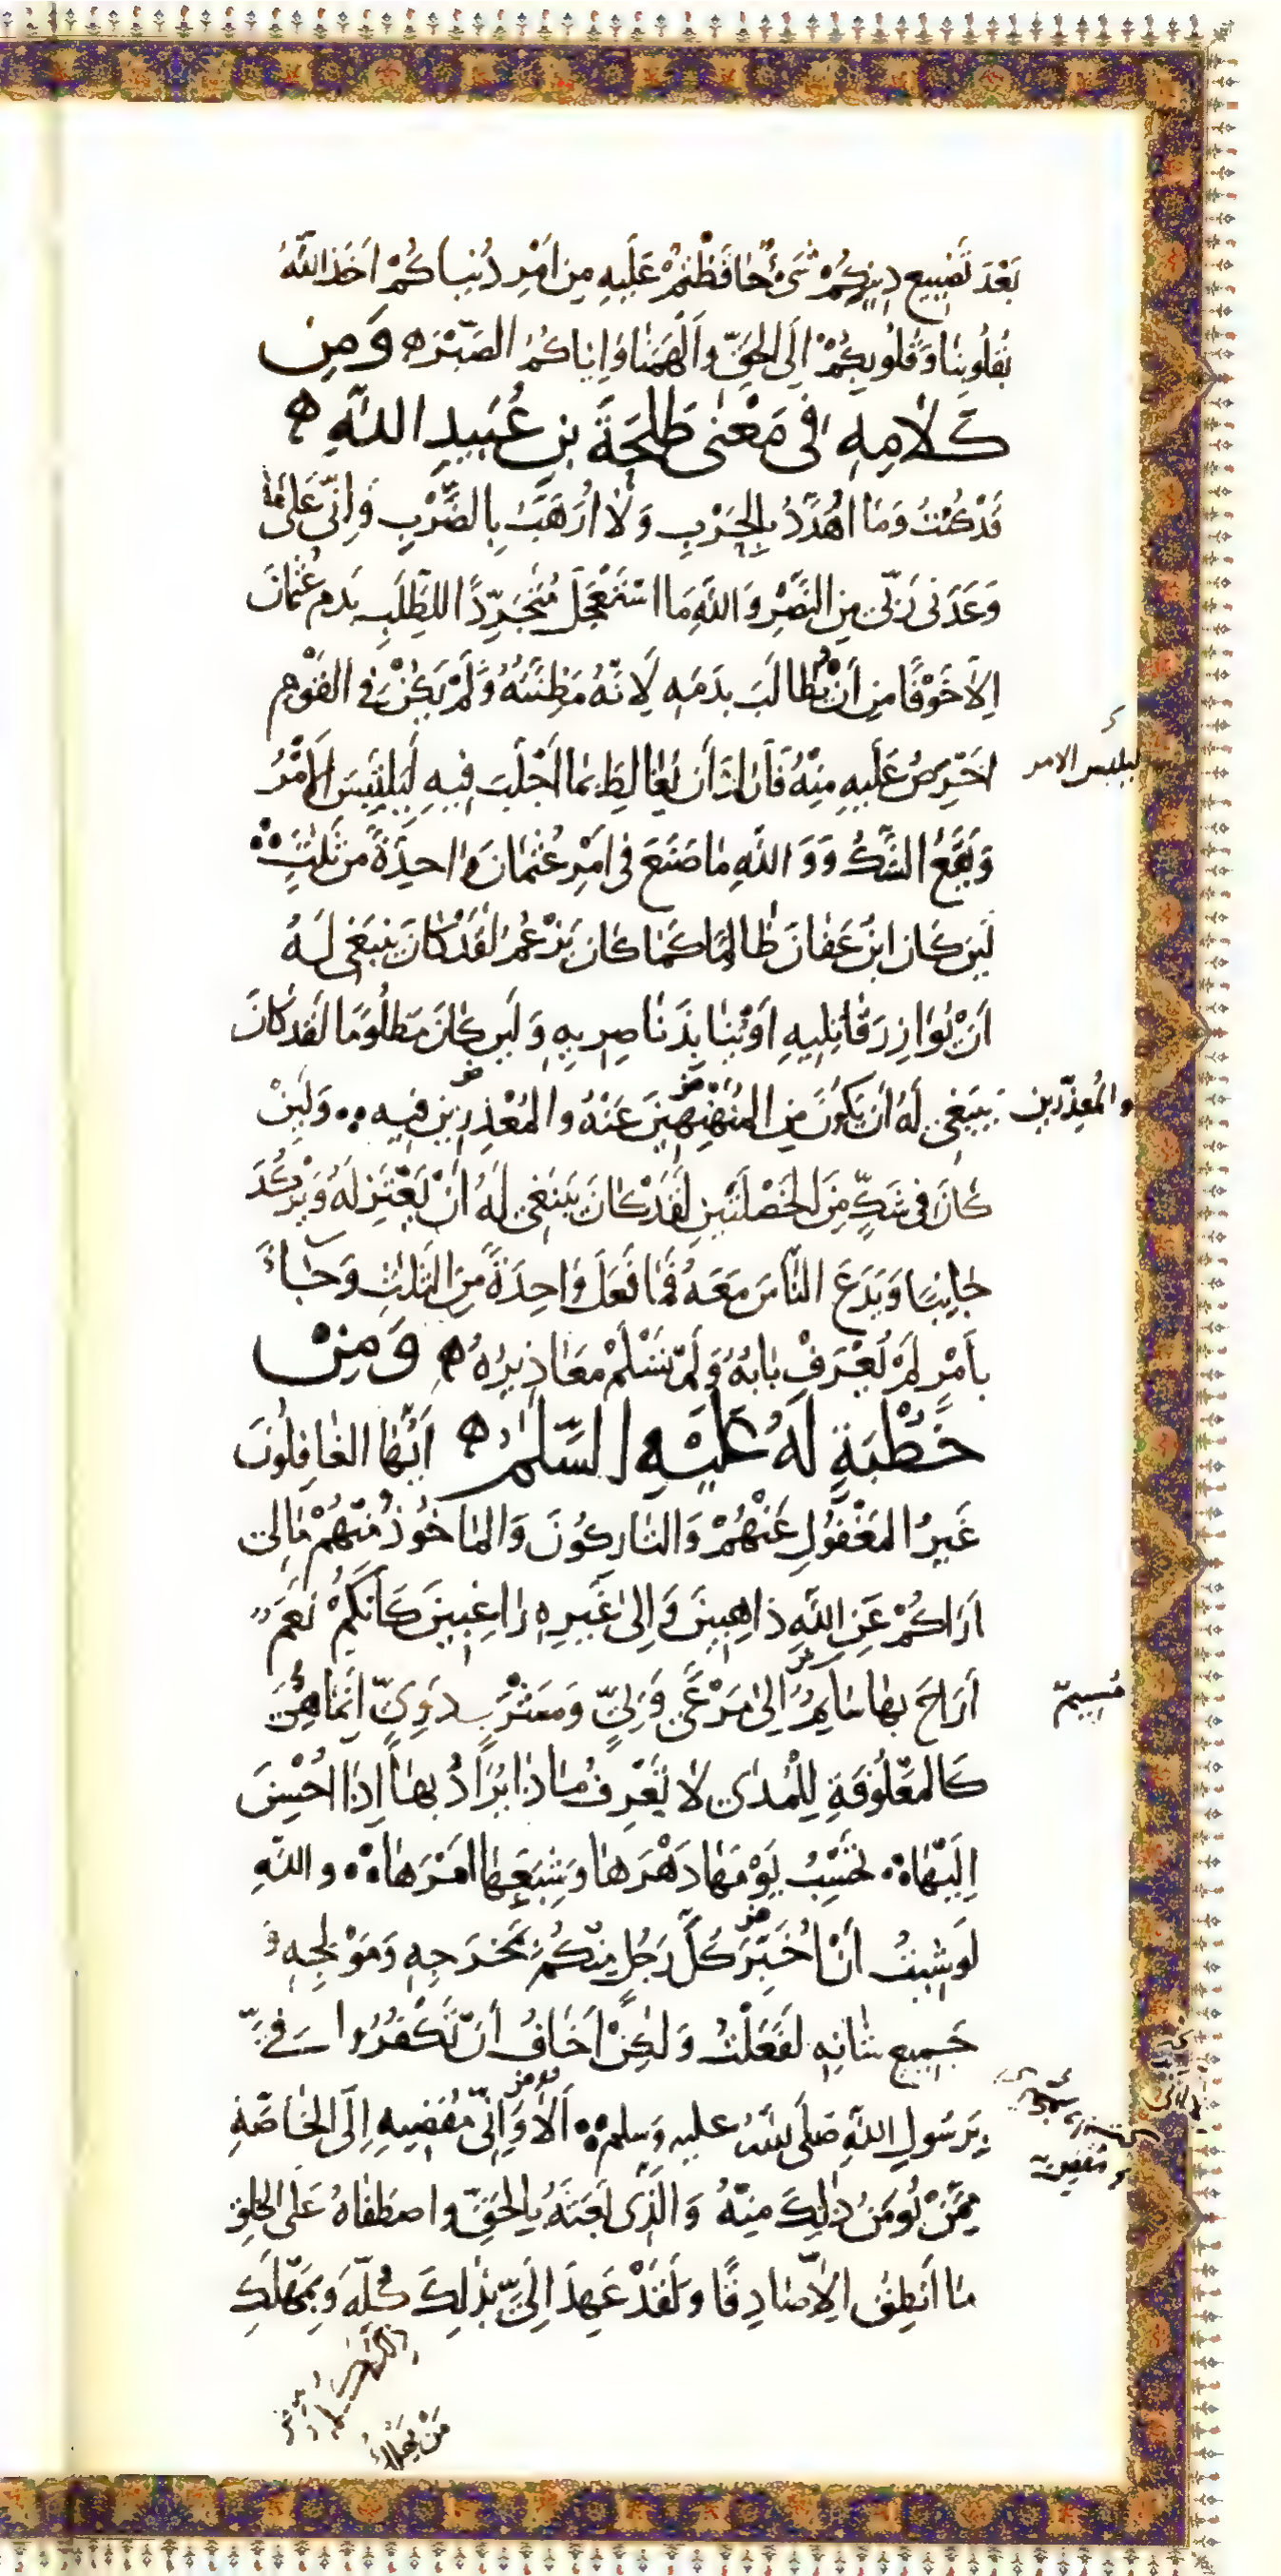 بَعْدَ تَضْيِيعِ دِينِكُمْ شَيْءٌ حَافَظْتُمْ عَلَيْهِ مِنْ اَمْرِ دُنْيَاكُمْ اَخَذَ اللهُ
بِقُلُوبِنَا وَقُلُوبِكُمْ اِلَى الحَقِّ وَاَلْهَمَنَا وَاِيَاكُمُ الصَّبْرَ ه وَمِن
كَلَامِهِ فِى مَعْنٰى طَلْحَةَ بنِ عُبَيدِ اللهِ ه
قَدْ كُنْتُ وَمَا اُهَدَّدُ بِالحَرْبِ وَلَا اُرَهَّبُ بِالضَّرْبِ وَاِنِّى عَلَى مَا
وَعَدَنِى رَبِّى مِنَ النَّصْرِ وَاللهِ مَا اسْتَعْجَلَ مُتَجَرِّدًا لِلطَّلَبِ بِدَمِ عُثْمَانَ
اِلَّا خَوْفًا مِن اَنْ يُطَالَبَ بِدَمِهِ لِاَنَّهُ مَظِنَّتُهُ وَلَمْ يَكُنْ فِى القَوْمِ
اَحْرَصُ عَلَيهِ مِنْهُ فَاَرَادَ اَن يُغَالِطَ بِمَا اَجْلَبَ فِيهِ لِيَلْتَبِسَ الاَمْرُ
ليلبس الامر
وَيَقَعَ الشَّكُّ وَوَ اللهِ مَا صَنَعَ فِى اَمْرِ عُثْمَانَ وَاحِدَةً مِن ثَلٰثٍ
لَئِن كَانَ ابْنُ عَفَّانَ ظَالِمًا كَمَا كَانَ يَزْعُمُ لَقَدْ كَانَ يَنْبَغِى لَهُ
اَنْ يُوَازِرَ قَاتِلِيهِ اَوْ يُنَابِذَ نَاصِرِيهِ وَلَئِن كَانَ مَظْلُومًا لَقَد كَانَ
يَنْبَغِى لَهُ اَن يَكُونَ مِنَ المُنَهْنِهِينَ عَنْهُ وَالمُعْذِرِينَ فِيهِ وَلَئِنْ
والمُعذّرين
كَانَ فِى شَكٍّ مِنَ الخَصْلَتَيْنِ لَقَدْ كَانَ يَنبَغِى لَهُ اَنْ يَعْتَزِلَهُ وَيَرْكُدَ
جَانِبًا وَيَدَعَ النَّاسَ مَعَهُ فَمَا فَعَلَ وَاحِدَةً مِنَ الثَلٰثِ وَجَاءَ
بِاَمْرٍ لَمْ يُعْرَفْ بَابُهُ وَلَمْ تَسْلَمْ مَعَاذِيرُهُ ه وَمِنْ
خُطْبَةٍ لَهُ عَلَيْهِ السَّلٰمُ ه اَيُّهَا الغَافِلُونَ
غَيْرُ المَغْفُولِ عَنْهُمْ وَالتَارِكُونَ وَالمَاخُوذُ مِنْهُمْ مَالِى
اَرَاكُمْ عَنِ اللهِ ذَاهِبِينَ وَاِلَى غَيْرِهِ رَاغِبِينَ كَاَنَّكُمْ نَعَمٌ
اَرَاحَ بِهَا سَايِمٌ اِلَى مَرْعًى وَبِىٍّ وَمَشْرَبٍ دَوِىٍّ اِنَّمَا هِىَ
مُسِيمٌ
كَالمَعْلُوفَةِ لِلْمُدَى لَا تَعْرِفُ مَاذَا يُرَادُ بِهَا اِذَا اُحْسِنَ
اِلَيْهَا تَحْسِبُ يَوْمَهَا دَهْرَهَا وَشِبَعَهَا اَمْرَهَا وَاللهِ
لَوْ شِئْتُ اَنْ اُخَبِّرَ كُلَّ رَجُلٍ مِنْكُمْ بِمَخْرَجِهِ وَمَوْلِجِهِ وَ
جَمِيعِ شَانِهِ لَفَعَلْتُ وَلٰكِنْ اَخَافُ اَنْ تَكْفُرُوا فِىَّ
بِرَسُولِ اللهِ صَلَّى اللهُ عليهِ وَسلم اَلَا وَاِنِّى مُفْضِيهِ اِلَى الخَاصَّةِ
مِمَّنْ يُومَنُ ذٰلِكَ مِنْهُ وَالَّذِى بَعَثَهُ بِالحَقِّ وَاصْطَفَاهُ عَلَى الخلقِ
مَا اَنْطِقُ اِلَّا صَادِقًا وَلَقَدْ عَهِدَ اِلَىَّ بِذٰلِكَ كُلِّهِ وَبِمَهْلَكِ
مَنْ يَهْلِكُ